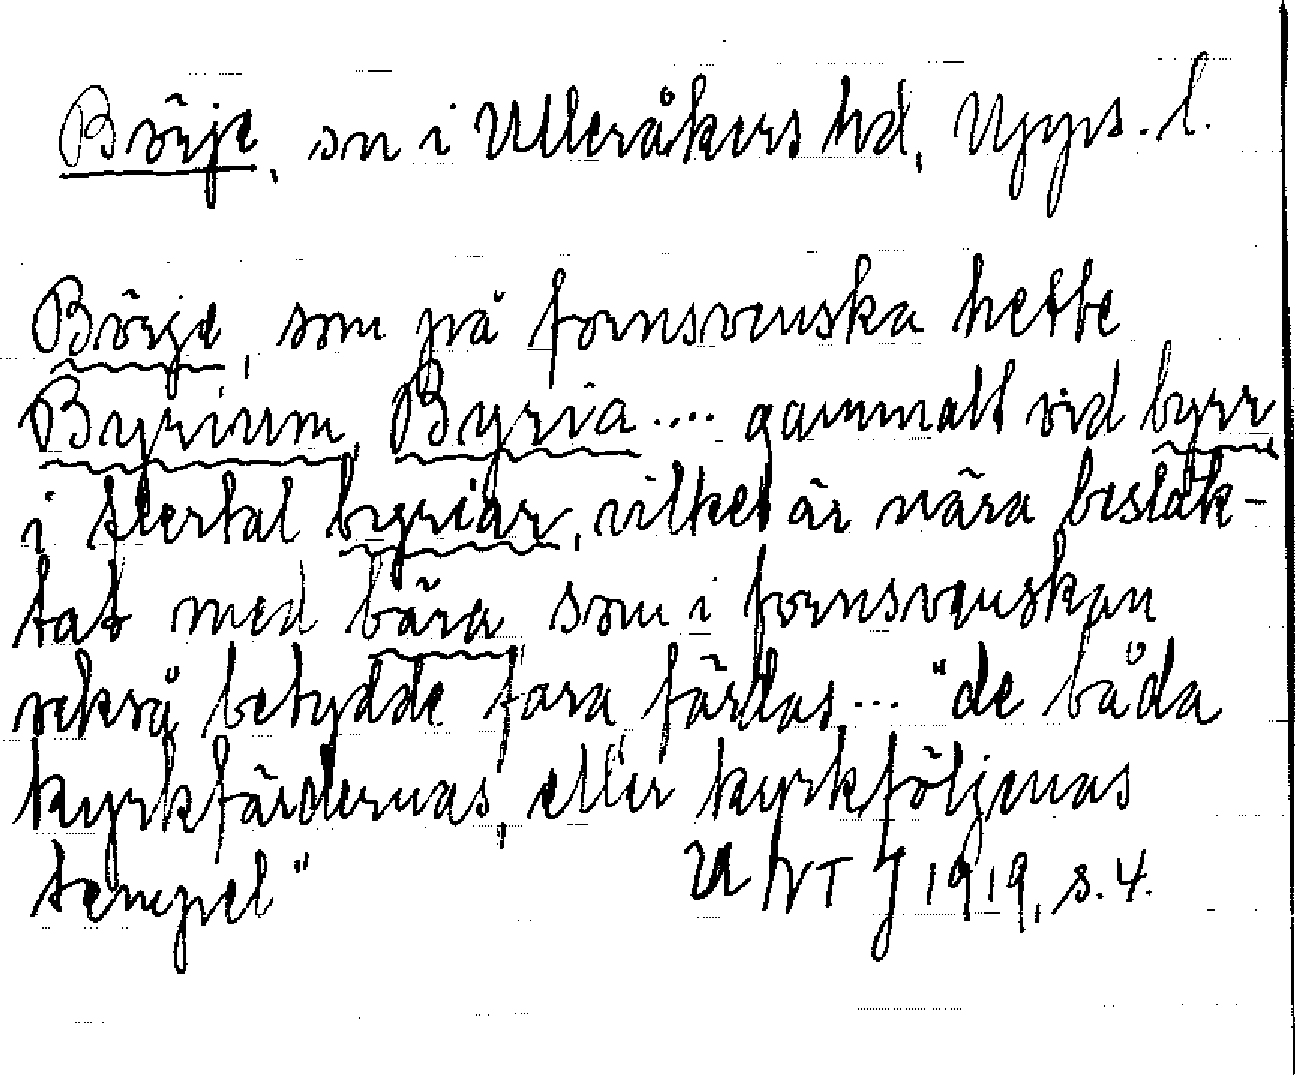 Börje, sn i Ulleråkers hd, Upps. l.
Börje, som på fornsvenska hette
Byrium, Byria .... gammalt vid byrr
i flertal byriar, vilket är nära besläk-
tat med bära som i fornsvenskan
också betydde fara färdas ... "de båda
kyrkfärdernas, eller kyrkföljenas
tempel" UNT J 1919, s. 4.